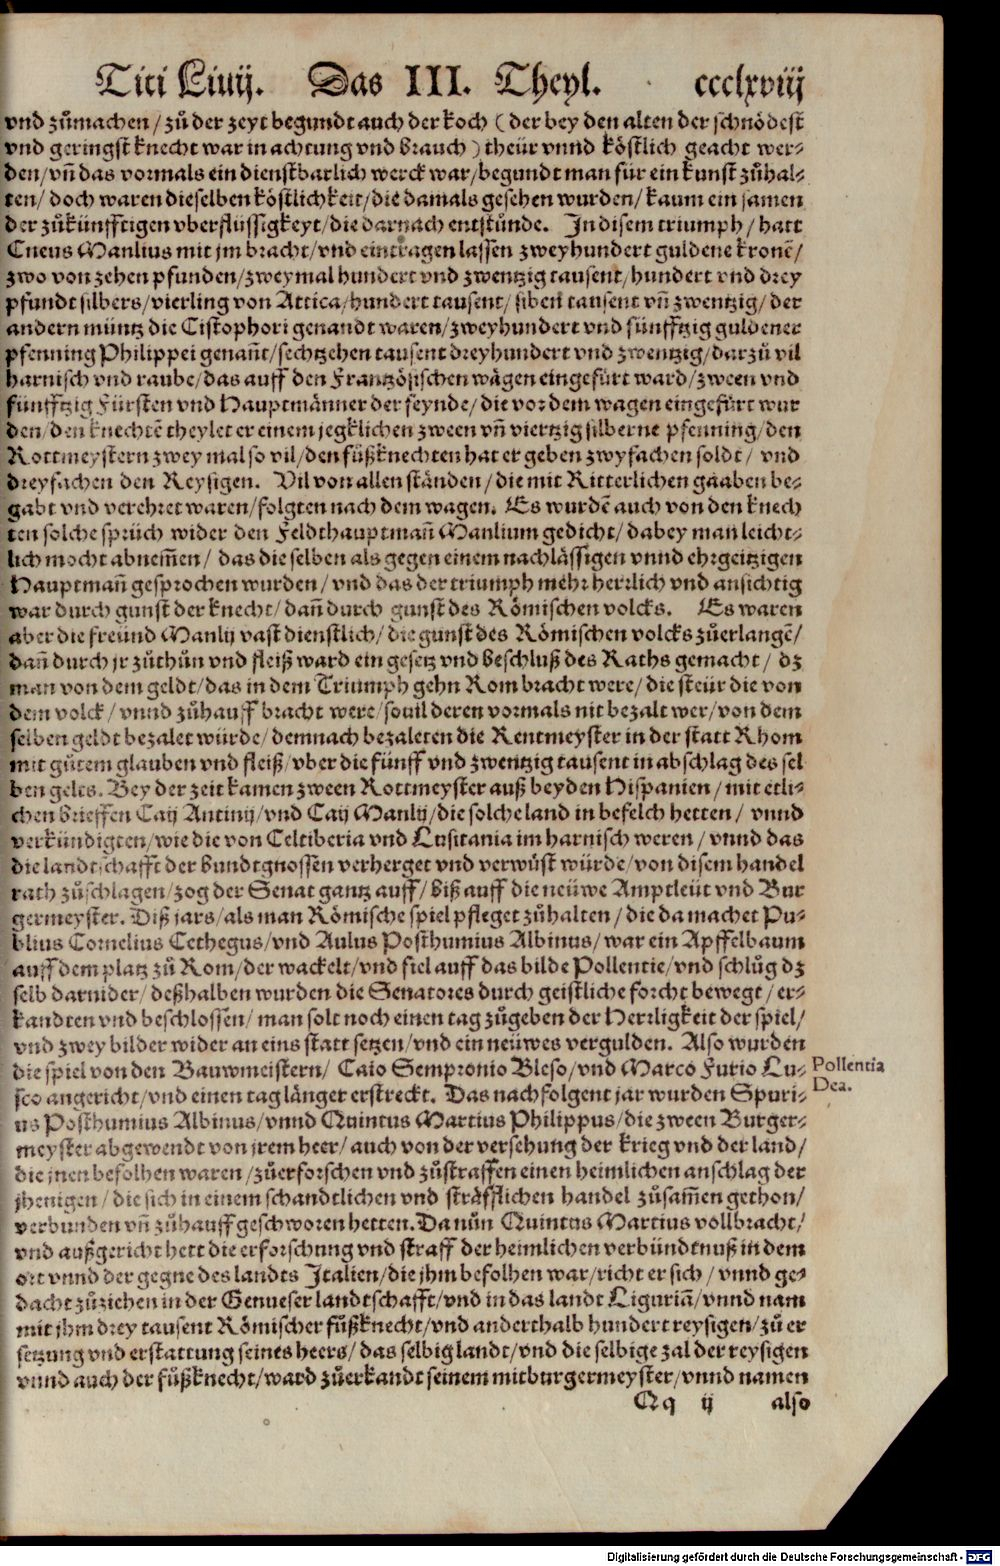 Titi Liuij. Das III. Theyl. ccclxviij
vnd zůmachen / zů der zeyt begundt auch der koch ( der bey den alten der schnödest
vnd geringst knecht war in achtung vnd brauch ) theür vnnd köstlich geacht wer-
den / vñ das vormals ein dienstbarlich werck war / begundt man für ein kunst zůhal-
ten / doch waren dieselben köstlichkeit / die damals gesehen wurden / kaum ein samen
der zůkünfftigen vberflüssigkeyt / die darnach entstünde. In disem triumph / hatt
Cneus Manlius mit jm bracht / vnd eintragen lassen zweyhundert guldene kronē /
zwo von zehen pfunden / zweymal hundert vnd zwentzig tausent / hundert vnd drey
pfundt silbers / vierling von Attica / hundert tausent / siben tausent vñ zwentzig / der
andern müntz die Cistophori genandt waren / zweyhundert vnd fünfftzig guldener
pfenning Philippei genañt / sechtzehen tausent dreyhundert vnd zwentzig / darzů vil
harnisch vnd raube / das auff den Frantzösischen wägen eingefürt ward / zween vnd
fünfftzig Fürsten vnd Hauptmänner der feynde / die vor dem wagen eingefürt wur
den / den knechtē theylet er einem jegklichen zween vñ viertzig silberne pfenning / den
Rottmeystern zwey mal so vil / den fůßknechten hat er geben zwyfachen soldt / vnd
dreyfachen den Reysigen. Vil von allen ständen / die mit Ritterlichen gaaben be-
gabt vnd verehret waren / folgten nach dem wagen. Es wurdē auch von den knech
ten solche sprüch wider den Feldthauptmañ Manlium gedicht / dabey man leicht-
lich mocht abnem̃en / das die selben als gegen einem nachlässigen vnnd ehrgeitzigen
Hauptmañ gesprochen wurden / vnd das der triumph mehr herrlich vnd ansichtig
war durch gunst der knecht / dañ durch gunst des Römischen volcks. Es waren
aber die freünd Manlij vast dienstlich / die gunst des Römischen volcks zůerlangē /
dañ durch jr zůthůn vnd fleiß ward ein gesetz vnd beschluß des Raths gemacht / dz
man von dem geldt / das in dem Triumph gehn Rom bracht were / die steür die von
dem volck / vnnd zůhauff bracht were / souil deren vormals nit bezalt wer / von dem
selben geldt bezalet würde / demnach bezaleten die Rentmeyster in der statt Rhom
mit gůtem glauben vnd fleiß / vber die fünff vnd zwentzig tausent in abschlag des sel
ben gelts. Bey der zeit kamen zween Rottmeyster auß beyden Hispanien / mit etli-
chen brieffen Caij Antinij / vnd Caij Manlij / die solche land in befelch hetten / vnnd
verkündigten / wie die von Celtiberia vnd Lusitania im harnisch weren / vnnd das
die landtschafft der bundtgnossen verherget vnd verwüst würde / von disem handel
rath zůschlagen / zog der Senat gantz auff / biß auff die neüwe Amptleüt vnd Bur
germeyster. Diß jars / als man Römische spiel pfleget zůhalten / die da machet Pu-
blius Cornelius Cethegus / vnd Aulus Posthumius Albinus / war ein Apffelbaum
auff dem platz zů Rom / der wackelt / vnd fiel auff das bilde Pollentie / vnd schlůg dz
selb darnider / deßhalben wurden die Senatores durch geistliche forcht bewegt / er-
kandten vnd beschlossen / man solt noch einen tag zůgeben der Herrligkeit der spiel /
vnd zwey bilder wider an eins statt setzen / vnd ein neüwes vergulden. Also wurden
die spiel von den Bauwmeistern / Caio Sempronio Bleso / vnd Marco Furio Lu-
sco angericht / vnd einen tag länger erstreckt. Das nachfolgent jar wurden Spuri-
us Posthumius Albinus / vnnd Quintus Martius Philippus / die zween Burger-
meyster abgewendt von jrem heer / auch von der versehung der krieg vnd der land /
die jnen befolhen waren / zůerforschen vnd zůstraffen einen heimlichen anschlag der
jhenigen / die sich in einem schandtlichen vnd sträfflichen handel zůsam̃en gethon /
verbunden vñ zůhauff geschworen hetten. Da nůn Quintus Martius vollbracht /
vnd außgericht hett die erforschung vnd straff der heimlichen verbündtnuß in dem
ort vnnd der gegne des landts Italien / die jhm befolhen war / richt er sich / vnnd ge-
dacht zůziehen in der Genueser landtschafft / vnd in das landt Liguriā / vnnd nam
mit jhm drey tausent Römischer fůßknecht / vnd anderthalb hundert reysigen / zů er
setzung vnd erstattung seines heers / das selbig landt / vnd die selbige zal der reysigen
vnnd auch der fůßknecht / ward zůerkandt seinem mitburgermeyster / vnnd namen
Qq ij also
Pollentia
Dea.
Digitalisierung gefördert durch die Deutsche Forschungsgemeinschaft - DFG